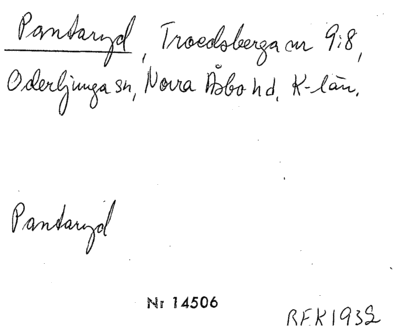 Pantaryd, Troedsberga nr 9:8,
Oderljunga sn, Norra Åsbo hd, K-län.
Pantaryd
Nr 14506
B.E.K 1932